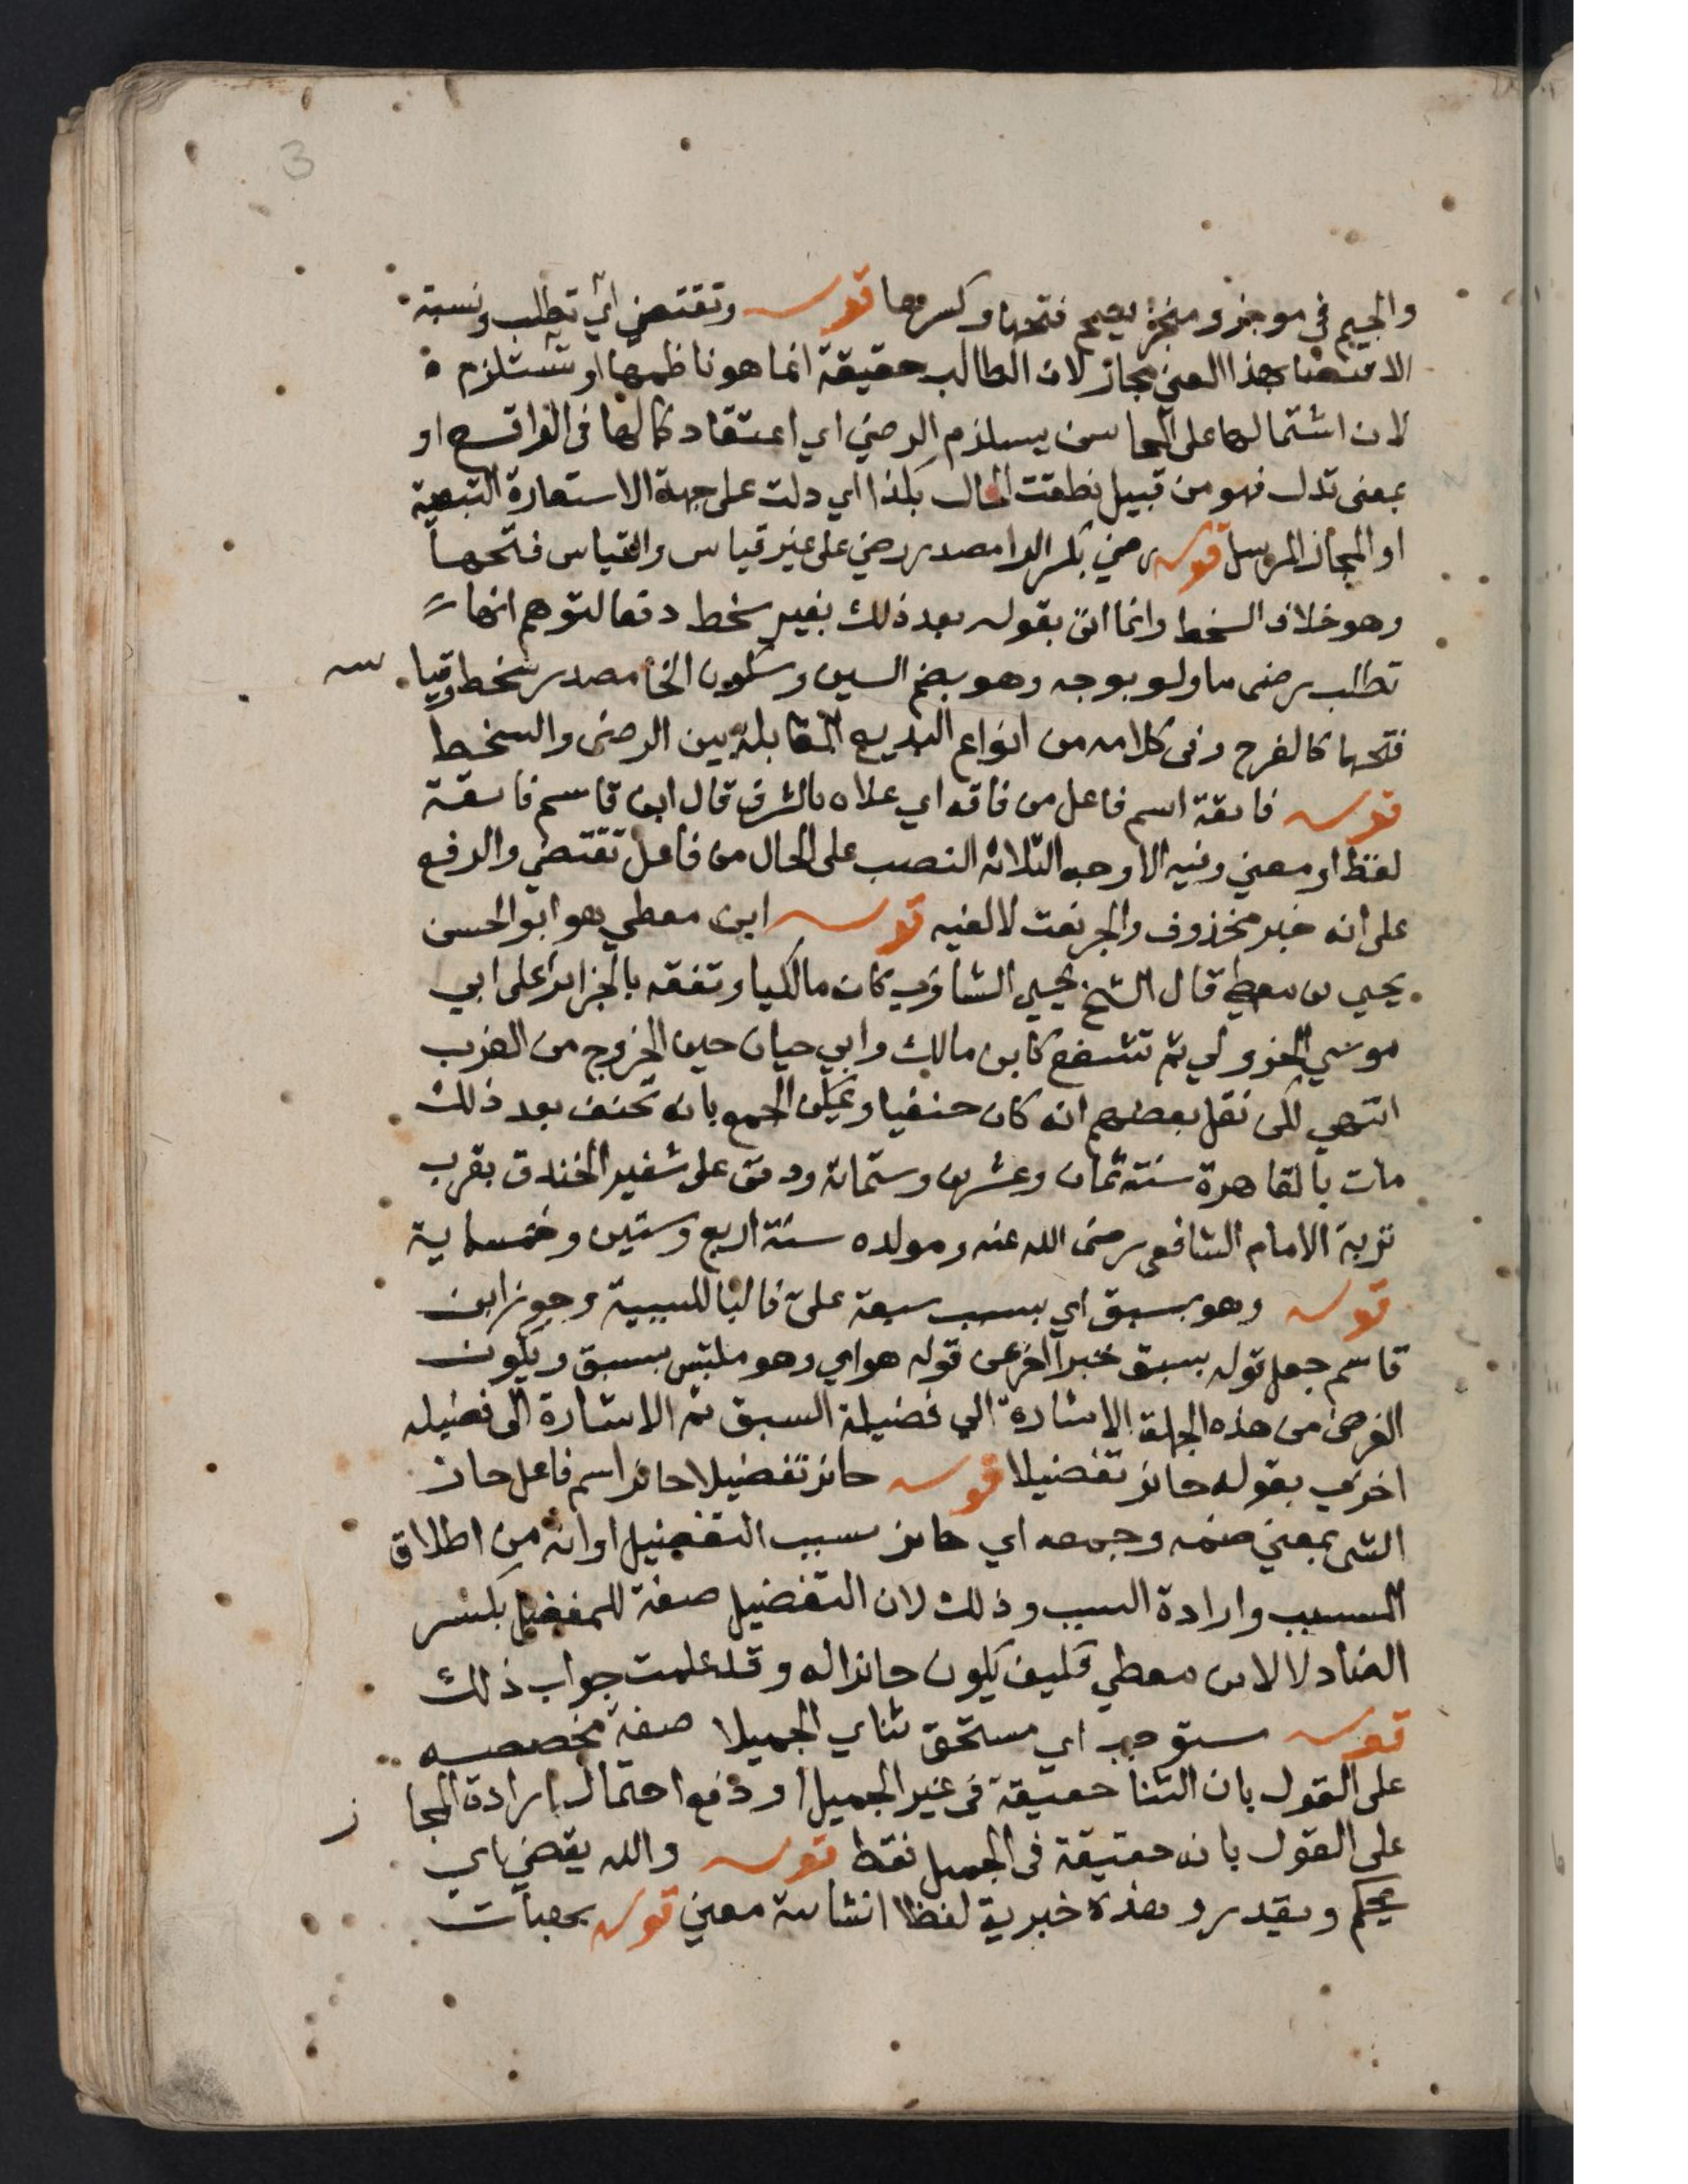 3
والجيم في موجز ومنجز يصح فتحها وكسرها قوله وتقتضي اي تطلب ونسبة
الاقتضا بهذا المعني مجاز لان الطالب حقيقة انما هو ناظمها او تستلزم
لان اشتمالها على المحاسن يستلزم الرضي اي اعتقاد كمالها في الواقع او
بمعنى تدل فهو من قبيل نطقت الحال بكذا اي دلت على جهة الاستعارة التبعية
او المجاز المرسل قوله رضي بكسر الرا مصدر رضي على غير قياس والقياس فتحها
وهو خلاف السخط وانما اتى بقوله بعد ذلك بغير سخط دفعا لتوهم انها
تطلب رضى ما ولو بوجه وهو بضم السين وسكون الخا مصدر سخط وقياس
فتحها كالفرح وفى كلامه من انواع البديع المقابلة بين الرضى والسخط
قوله فايقة اسم فاعل من فاقه اي علاه بالشرف قال ابن قاسم فايقة
لفظا او معني وفيه الاوجه الثلاثة النصب على الحال من فاعل تقتضي والرفع
على انه خبر مخذوف والجر نعت لالفيه قوله ابن معطي هو ابو الحسن
يحيي بن معطي قال الشيخ يحيي الشاوي كان مالكيا وتفقه بالجزاير على ابي
موسي الجزولي ثم تشفع كابن مالك وابي حيان حين الخروج من الغرب
انتهي لكن نقل بعضهم انه كان حنفيا ويمكن الجمع بانه تحنف بعد ذلك
مات بالقاهرة سنة ثمان وعشرين وستمائة ودفن على شفير الخندق بقرب
تربة الامام الشافعي رضى الله عنه ومولده سنة اربع وستين وخمسماية
قوله وهو بسبق اي بسبب سبقه علي فالبا للسببية وجوز ابن
قاسم جعل قوله بسبق خبرا اخر عن قوله هو اي وهو ملتبس بسبق ويكون
الغرض من هذه الجملة الاشارة الي فضيلة السبق ثم الاشارة الى فضيله
اخري بقوله حايز تفضيلا قوله حايز تفضيلا حايز اسم فاعل حاز
الشى بمعني ضمه وجمعه اي حايز سبب التفضيل او انه من اطلاق
المسبب وارادة السبب وذلك لان التفضيل صفة للمفضل بكسر
الضاد لا لابن معطي فكيف يكون حايزا له وقد علمت جواب ذلك
قوله مستوجب اي مستحق ثناي الجميلا صفة مخصصه
على القول بان الثنا حقيقة فى غير الجميل او دفع احتمال ارادة المجاز
على القول بانه حقيقة فى الجميل فقط قوله والله يقضي اي
يحكم ويقدر وهذه خبرية لفظا انشائية معني قوله بهبات